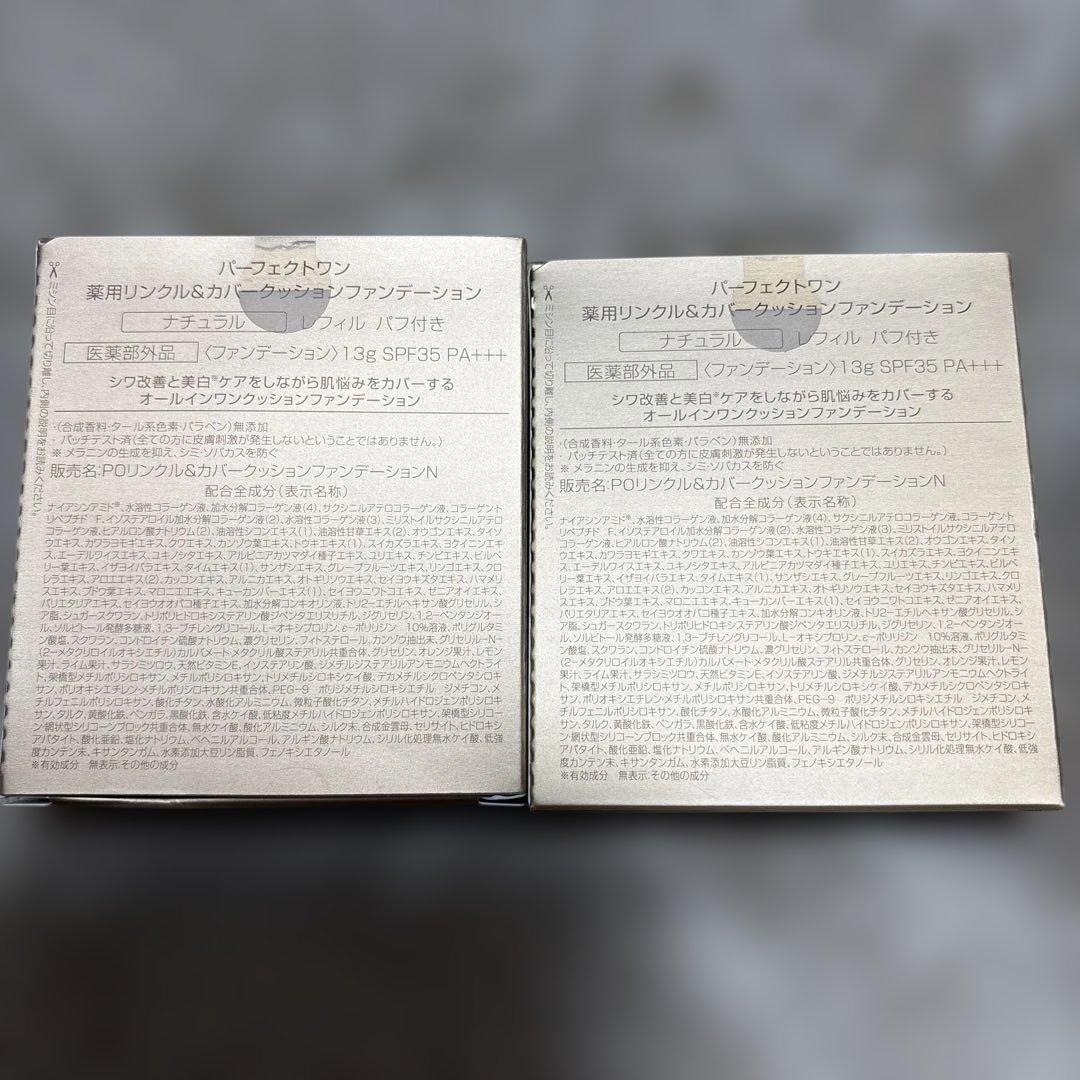 パーフェクトワン
薬用リンクル&カバークッションファンデーション
ナチュラル レフィル パフ付き
医薬部外品 〈ファンデーション〉13g SPF35 PA+++
シワ改善と美白※ケアをしながら肌悩みをカバーする
オールインワンクッションファンデーション
・(合成香料・タール系色素・パラベン)無添加
・パッチテスト済(全ての方に皮膚刺激が発生しないということではありません。)
※ メラニンの生成を抑え、シミ・ソバカスを防ぐ
販売名:POリンクル&カバークッションファンデーションN
配合全成分(表示名称)
ナイアシンアミド※、水溶性コラーゲン液、加水分解コラーゲン液(4)、サクシニルアテロコラーゲン液、コラーゲント
リペプチド F、イソステアロイル加水分解コラーゲン液(2)、水溶性コラーゲン液(3)、ミリストイルサクシニルアテロ
コラーゲン液、ヒアルロン酸ナトリウム(2)、油溶性シコンエキス(1)、油溶性甘草エキス(2)、オウゴンエキス、タイソ
ウエキス、カワラヨモギエキス、クワエキス、カンゾウ葉エキス、トウキエキス(1)、スイカズラエキス、ヨクイニンエキ
ス、エーデルワイスエキス、ユキノシタエキス、アルピニアカツマダイ種子エキス、ユリエキス、チンピエキス、ビルベ
リー葉エキス、イザヨイバラエキス、タイムエキス(1)、サンザシエキス、グレープフルーツエキス、リンゴエキス、クロ
レラエキス、アロエエキス(2)、カッコンエキス、アルニカエキス、オトギリソウエキス、セイヨウキズタエキス、ハマメリ
スエキス、ブドウ葉エキス、マロニエエキス、キューカンバーエキス(1)、セイヨウニワトコエキス、ゼニアオイエキス、
パリエタリアエキス、セイヨウオオバコ種子エキス、加水分解コンキオリン液、トリ2-エチルヘキサン酸グリセリル、シ
ア脂、シュガースクワラン、トリポリヒドロキシステアリン酸ジペンタエリスリチル、ジグリセリン、1,2-ペンタンジオ
ール、ソルビトール発酵多糖液、1,3-ブチレングリコール、L-オキシプロリン、ε-ポリリジン 10%溶液、ポリグルタミ
ン酸塩、スクワラン、コンドロイチン硫酸ナトリウム、濃グリセリン、フィトステロール、カンゾウ抽出末、グリセリル-N-
(2-メタクリロイルオキシエチル)カルバメート・メタクリル酸ステアリル共重合体、グリセリン、オレンジ果汁、レモン
果汁、ライム果汁、サラシミツロウ、天然ビタミンE、イソステアリン酸、ジメチルジステアリルアンモニウムヘクトライ
ト、架橋型メチルポリシロキサン、メチルポリシロキサン、トリメチルシロキシケイ酸、デカメチルシクロペンタシロキ
サン、ポリオキシエチレン・メチルポリシロキサン共重合体、PEG-9 ポリジメチルシロキシエチル ジメチコン、メ
チルフェニルポリシロキサン、酸化チタン、水酸化アルミニウム、微粒子酸化チタン、メチルハイドロジェンポリシロキ
サン、タルク、黄酸化鉄、ベンガラ、黒酸化鉄、含水ケイ酸、低粘度メチルハイドロジェンポリシロキサン、架橋型シリコー
ン・網状型シリコーンブロック共重合体、無水ケイ酸、酸化アルミニウム、シルク末、合成金雲母、セリサイト、ヒドロキシ
アパタイト、酸化亜鉛、塩化ナトリウム、ベヘニルアルコール、アルギン酸ナトリウム、シリル化処理無水ケイ酸、低強
度カンテン末、キサンタンガム、水素添加大豆リン脂質、フェノキシエタノール
※有効成分 無表示:その他の成分
ミシン目に沿って切り離し、内側の説明をお読みください。
パーフェクトワン
薬用リンクル&カバークッションファンデーション
ナチュラル レフィル パフ付き
医薬部外品 〈ファンデーション〉13g SPF35 PA+++
シワ改善と美白※ケアをしながら肌悩みをカバーする
オールインワンクッションファンデーション
・(合成香料・タール系色素・パラベン)無添加
・パッチテスト済(全ての方に皮膚刺激が発生しないということではありません。)
※ メラニンの生成を抑え、シミ・ソバカスを防ぐ
販売名:POリンクル&カバークッションファンデーションN
配合全成分(表示名称)
ナイアシンアミド※、水溶性コラーゲン液、加水分解コラーゲン液(4)、サクシニルアテロコラーゲン液、コラーゲント
リペプチド F、イソステアロイル加水分解コラーゲン液(2)、水溶性コラーゲン液(3)、ミリストイルサクシニルアテロ
コラーゲン液、ヒアルロン酸ナトリウム(2)、油溶性シコンエキス(1)、油溶性甘草エキス(2)、オウゴンエキス、タイソ
ウエキス、カワラヨモギエキス、クワエキス、カンゾウ葉エキス、トウキエキス(1)、スイカズラエキス、ヨクイニンエキ
ス、エーデルワイスエキス、ユキノシタエキス、アルピニアカツマダイ種子エキス、ユリエキス、チンピエキス、ビルベ
リー葉エキス、イザヨイバラエキス、タイムエキス(1)、サンザシエキス、グレープフルーツエキス、リンゴエキス、クロ
レラエキス、アロエエキス(2)、カッコンエキス、アルニカエキス、オトギリソウエキス、セイヨウキズタエキス、ハマメリ
スエキス、ブドウ葉エキス、マロニエエキス、キューカンバーエキス(1)、セイヨウニワトコエキス、ゼニアオイエキス、
パリエタリアエキス、セイヨウオオバコ種子エキス、加水分解コンキオリン液、トリ2-エチルヘキサン酸グリセリル、シ
ア脂、シュガースクワラン、トリポリヒドロキシステアリン酸ジペンタエリスリチル、ジグリセリン、1,2-ペンタンジオ
ール、ソルビトール発酵多糖液、1,3-ブチレングリコール、L-オキシプロリン、ε-ポリリジン 10%溶液、ポリグルタミ
ン酸塩、スクワラン、コンドロイチン硫酸ナトリウム、濃グリセリン、フィトステロール、カンゾウ抽出末、グリセリル-N-
(2-メタクリロイルオキシエチル)カルバメート・メタクリル酸ステアリル共重合体、グリセリン、オレンジ果汁、レモン
果汁、ライム果汁、サラシミツロウ、天然ビタミンE、イソステアリン酸、ジメチルジステアリルアンモニウムヘクトライ
ト、架橋型メチルポリシロキサン、メチルポリシロキサン、トリメチルシロキシケイ酸、デカメチルシクロペンタシロキ
サン、ポリオキシエチレン・メチルポリシロキサン共重合体、PEG-9 ポリジメチルシロキシエチル ジメチコン、メ
チルフェニルポリシロキサン、酸化チタン、水酸化アルミニウム、微粒子酸化チタン、メチルハイドロジェンポリシロキ
サン、タルク、黄酸化鉄、ベンガラ、黒酸化鉄、含水ケイ酸、低粘度メチルハイドロジェンポリシロキサン、架橋型シリコー
ン・網状型シリコーンブロック共重合体、無水ケイ酸、酸化アルミニウム、シルク末、合成金雲母、セリサイト、ヒドロキシ
アパタイト、酸化亜鉛、塩化ナトリウム、ベヘニルアルコール、アルギン酸ナトリウム、シリル化処理無水ケイ酸、低強
度カンテン末、キサンタンガム、水素添加大豆リン脂質、フェノキシエタノール
※有効成分 無表示:その他の成分
ミシン目に沿って切り離し、内側の説明をお読みください。